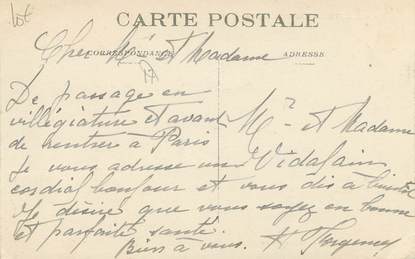 Lot
CARTE POSTALE
CORRESPONDANCE
ADRESSE
Cher Mr et Madame
De passage en
villégiature et avant
de rentrer à Paris
Je vous adresse un
cordial bonjour et vous dis à bientôt
Je désire que vous soyez en bonne
et parfaite santé.
Bien à vous. H
Mr et Madame
Vidalain